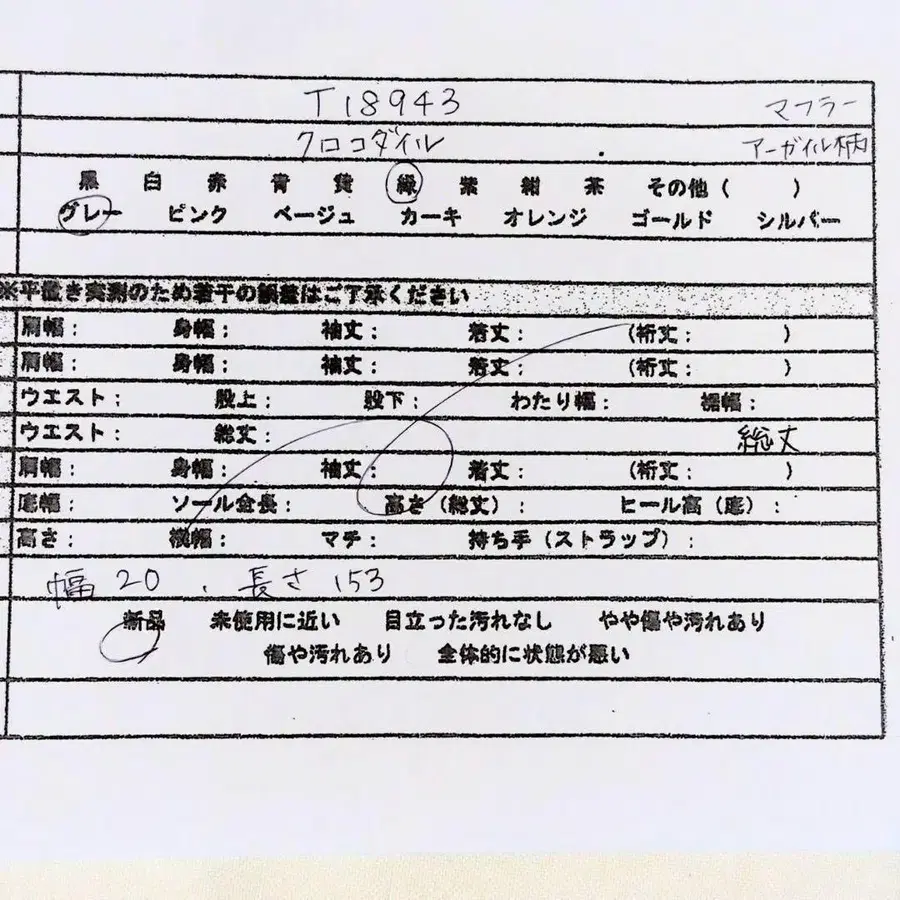 T18943 マフラー
クロコダイル アーガイル柄
黒 白 赤 青 黄 緑 紫 紺 茶 その他( )
グレー ピンク ベージュ カーキ オレンジ ゴールド シルバー
※平置き実測のため若干の誤差はご了承ください
肩幅: 身幅: 袖丈: 着丈: (裄丈: )
肩幅: 身幅: 袖丈: 着丈: (裄丈: )
ウエスト: 股上: 股下: わたり幅: 裾幅:
ウエスト: 総丈: 総丈
肩幅: 身幅: 袖丈: 着丈: (裄丈: )
底幅: ソール全長: 高さ(総丈): ヒール高(底):
高さ: 横幅: マチ: 持ち手(ストラップ):
幅 20 . 長さ 153
新品 未使用に近い 目立った汚れなし やや傷や汚れあり
傷や汚れあり 全体的に状態が悪い